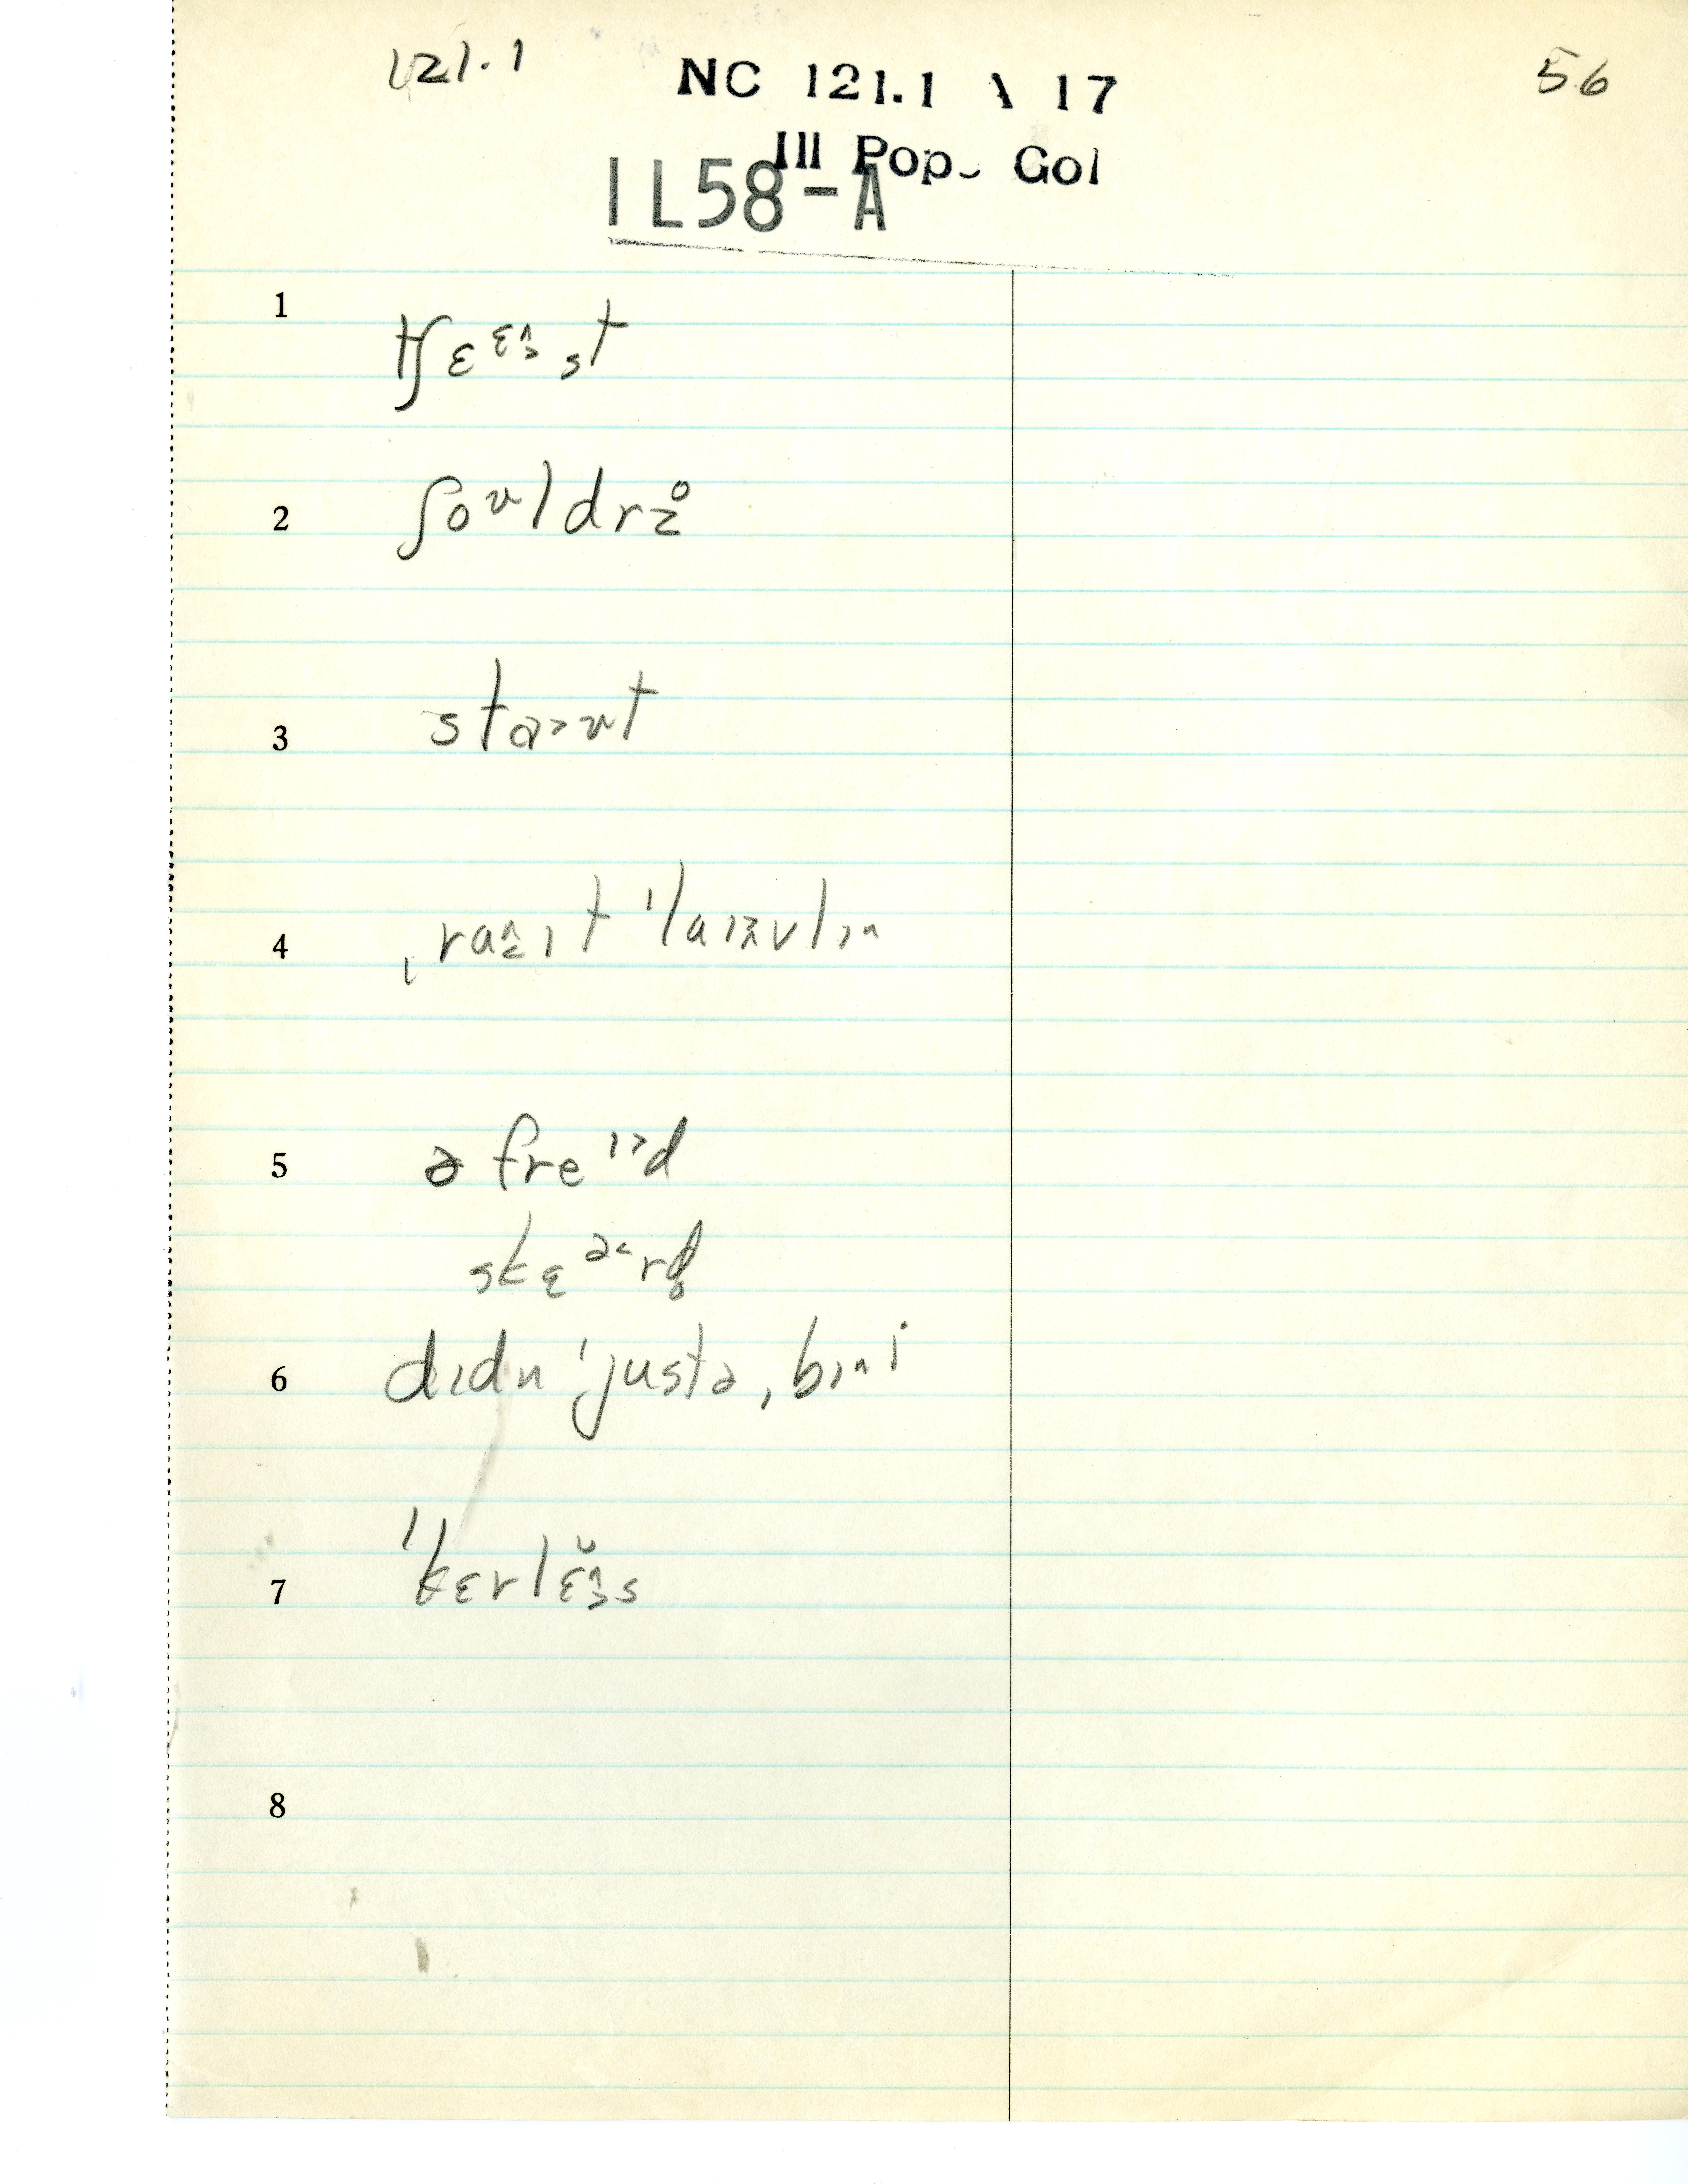 121.1
NC 121.1 \ 17
56
Ill Pop. Gol
IL58-A
1 tʃɛᵋ˄˒st
2 ʃoᶷldrz̥
3 sta˃ᶷt
4 ˌraˆ˂ɪt ˈlaɪ˃vlɪⁿ
5 ə freᶦ˃d
skɛᵊ˂rd̥
6 dɪdn ˈjustə ˌbɪⁿi
7 ˈkɛrlɛ̆˄˒s
8